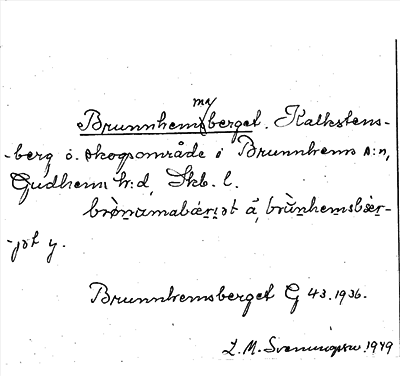 ma
Brunnhemsberget. Kalkstens-
-berg o. skogsområde i Brunnhems s:n,
Gudhems h:d, Skb. l.
brònamabæṛjət ä, brùnhemsbær-
-jət y.
Brunnhemsberget G 43. 1936.
L. M. Svenningson. 1949